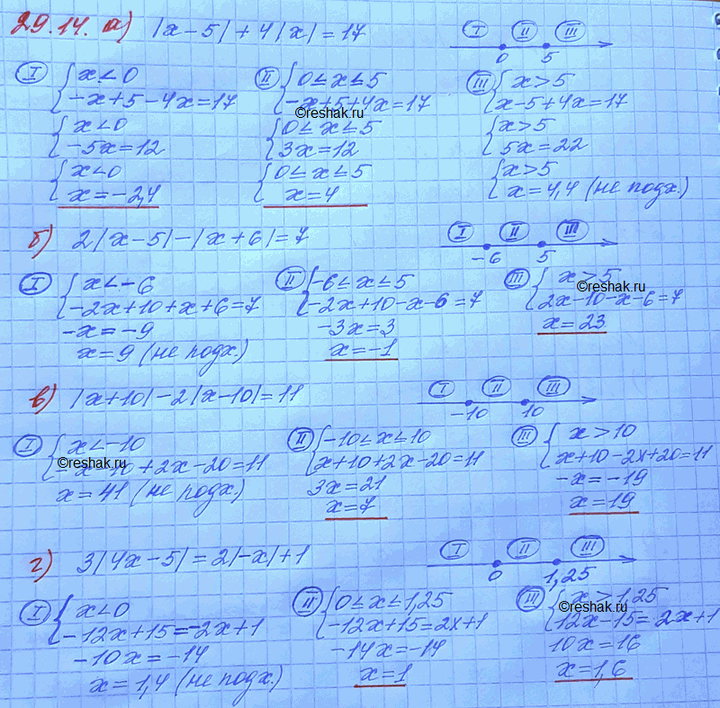 29.14. а) |x-5|+4|x|=17
I II III
0 5
I { x<0
-x+5-4x=17
{ x<0
-5x=12
{ x<0
x=-2,4
II { 0≤x≤5
-x+5+4x=17
reshak.ru
{ 0≤x≤5
3x=12
{ 0≤x≤5
x=4
III { x>5
x-5+4x=17
{ x>5
5x=22
{ x>5
x=4,4 (не подх.)
б) 2|x-5|-|x+6|=7
I II III
-6 5
I { x<-6
-2x+10+x+6=7
-x=-9
x=9 (не подх)
II { -6≤x≤5
-2x+10-x-6=7
-3x=3
x=-1
III { x>5
reshak.ru
2x-10-x-6=7
x=23
в) |x+10|-2|x-10|=11
I II III
-10 10
I { x<-10
reshak.ru
-x-10+2x-20=11
x=41 (не подх)
II { -10≤x≤10
x+10+2x-20=11
3x=21
x=7
III { x>10
x+10-2x+20=11
-x=-19
x=19
г) 3|4x-5|=2|-x|+1
I II III
0 1,25
I { x<0
-12x+15=-2x+1
-10x=-14
x=1,4 (не подх.)
II { 0≤x≤1,25
-12x+15=2x+1
-14x=-14
x=1
III { x>1,25
reshak.ru
12x-15=2x+1
10x=16
x=1,6